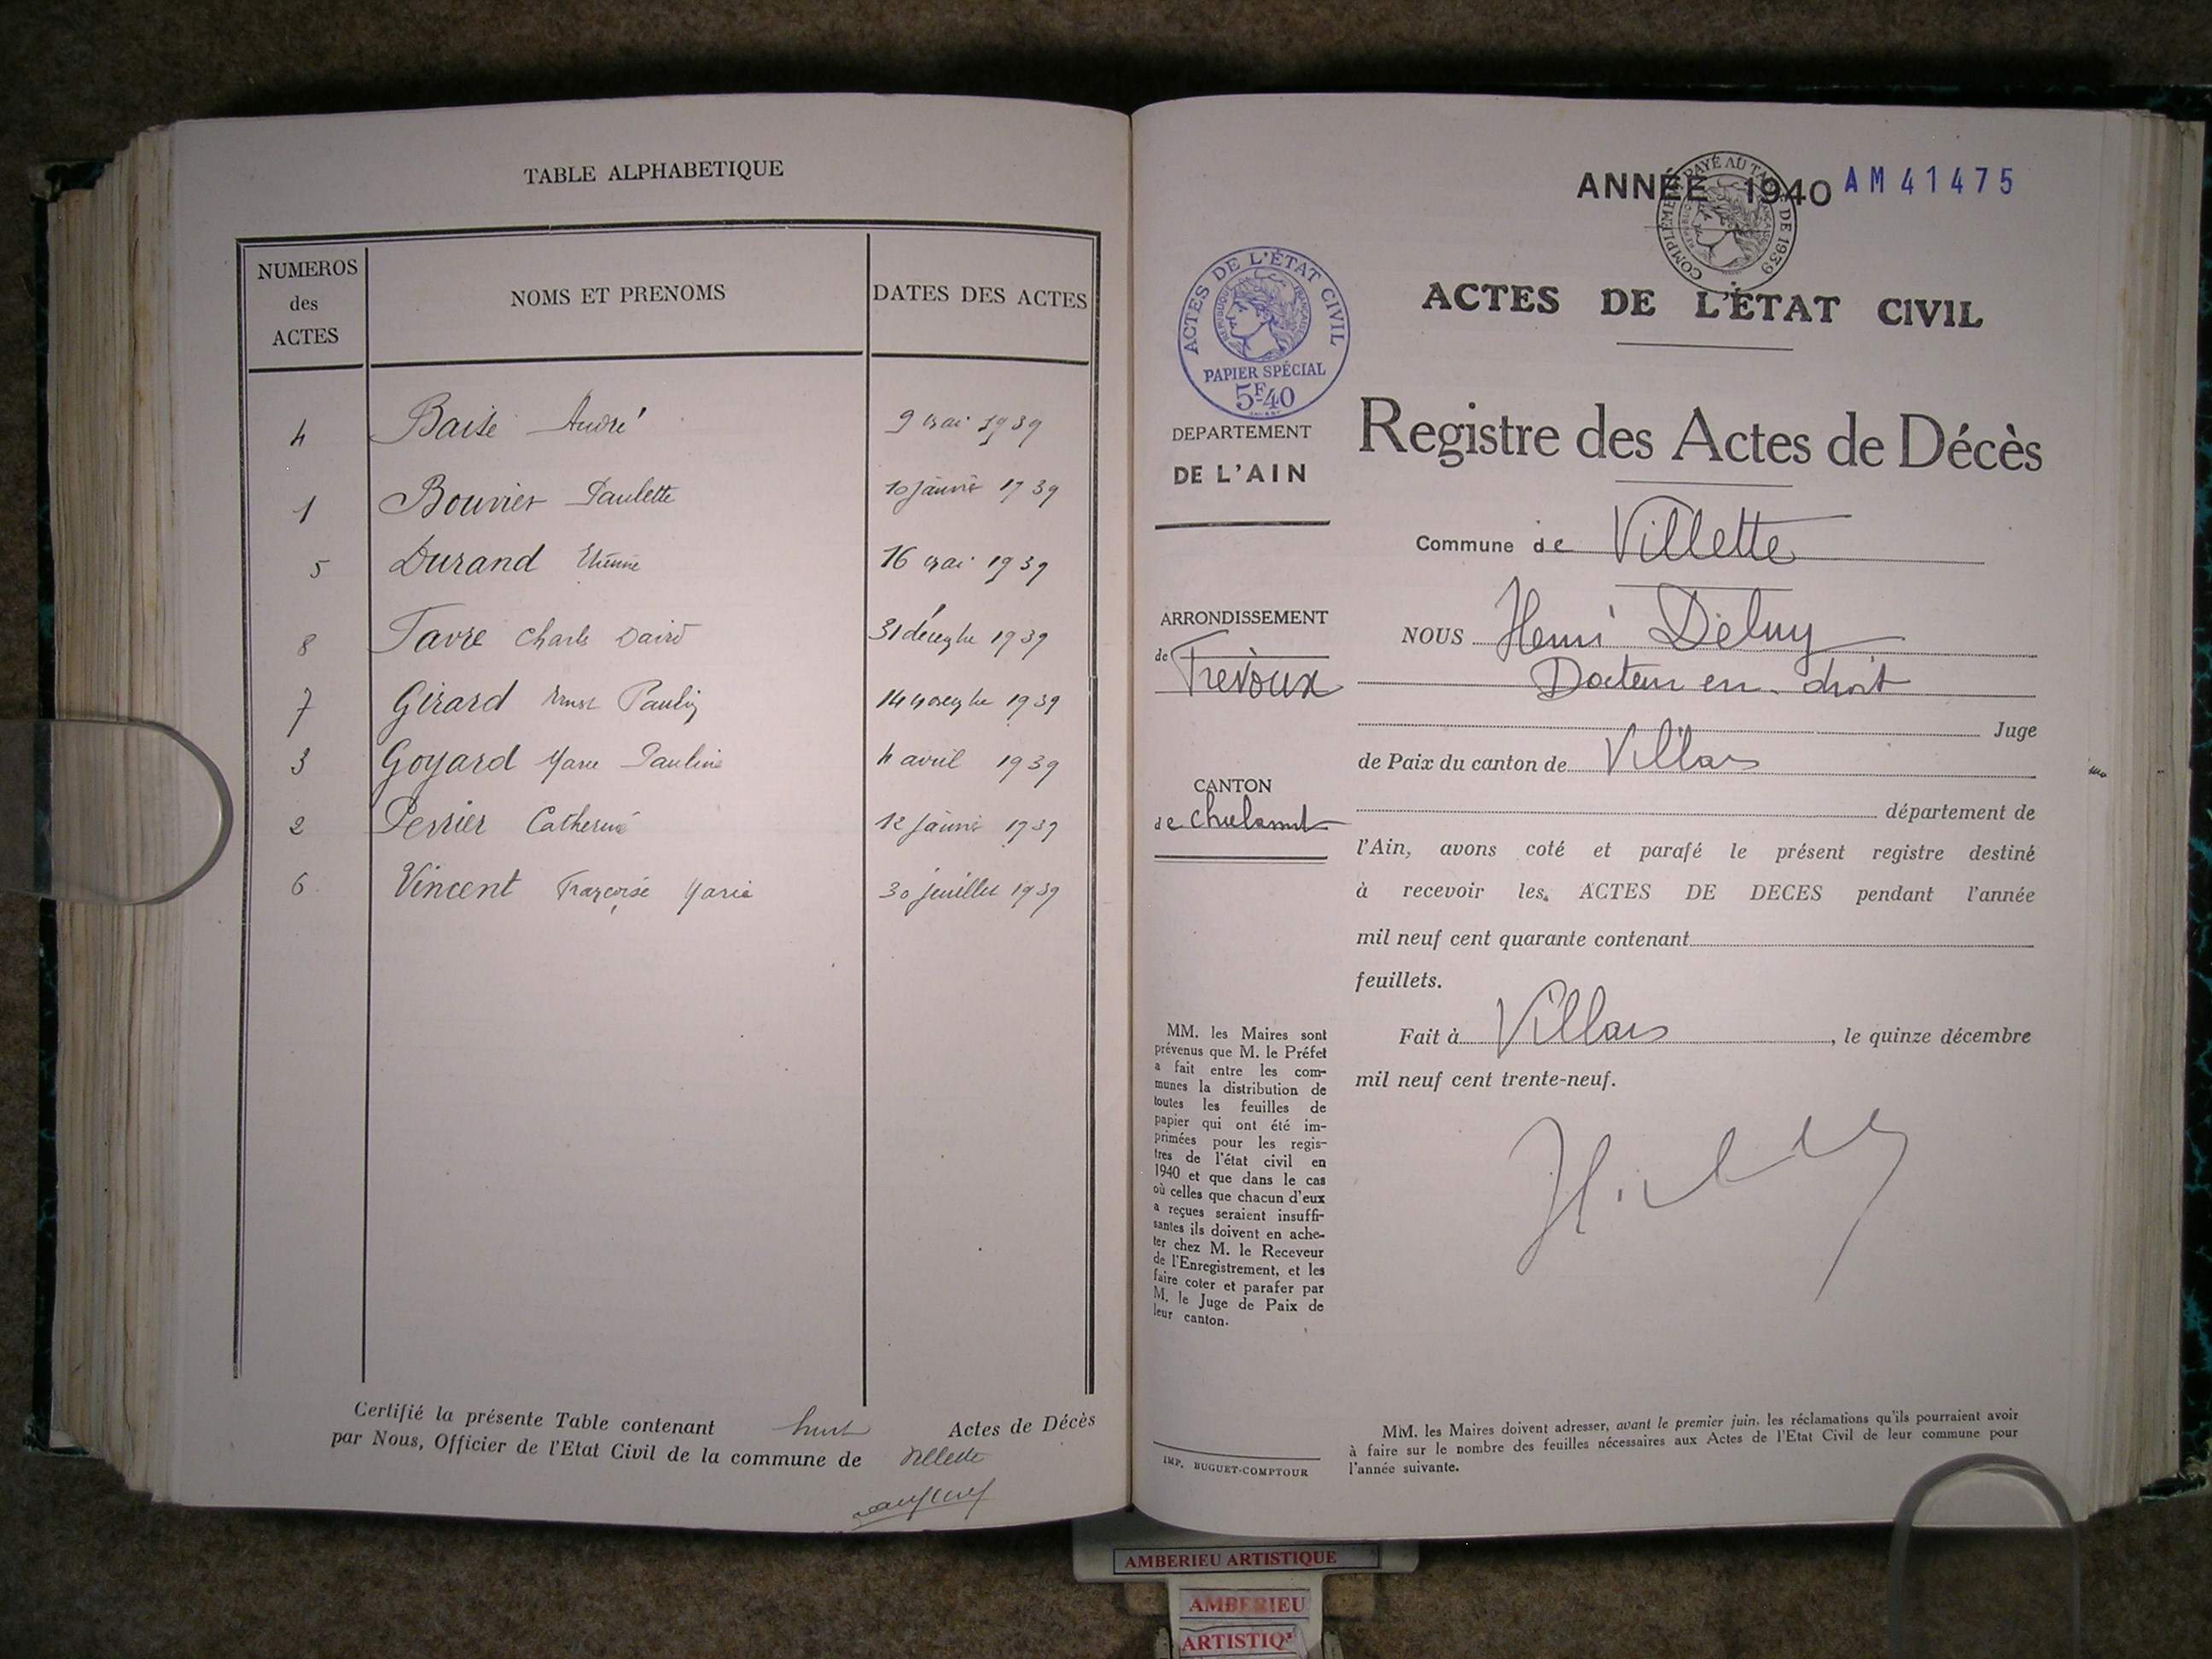 TABLE ALPHABETIQUE
NUMEROS des ACTES
NOMS ET PRENOMS
DATES DES ACTES
4 Baise André 9 mai 1939
1 Bouvier Paulette 10 janvier 1939
5 Durand Etienne 16 mai 1939
8 Favre Charles David 31 décembre 1939
7 Girard Ernest Paulin 14 novembre 1939
3 Goyard Marie Pauline 4 avril 1939
2 Perrier Catherine 12 janvier 1939
6 Vincent Françoise Marie 30 juillet 1939
Certifié la présente Table contenant huit Actes de Décès
par Nous, Officier de l'Etat Civil de la commune de Villette
ANNÉE 1940 AM 41475
COMPLÉMENT PAYÉ AU TARIF DE 1939
ACTES DE L'ÉTAT CIVIL
RÉPUBLIQUE FRANÇAISE
PAPIER SPÉCIAL
5F40
ACTES DE L'ÉTAT CIVIL
DEPARTEMENT
DE L'AIN
Registre des Actes de Décès
Commune de Villette
ARRONDISSEMENT
de Trévoux
NOUS Henri Deluy
Docteur en droit
Juge
de Paix du canton de Villars
CANTON
de Chalamont
département de
l'Ain, avons coté et parafé le présent registre destiné
à recevoir les ACTES DE DECES pendant l'année
mil neuf cent quarante contenant
feuillets.
Fait à Villars, le quinze décembre
mil neuf cent trente-neuf.
MM. les Maires sont
prévenus que M. le Préfet
a fait entre les com-
munes la distribution de
toutes les feuilles de
papier qui ont été im-
primées pour les regis-
tres de l'état civil en
1940 et que dans le cas
où celles que chacun d'eux
a reçues seraient insuffi-
santes ils doivent en ache-
ter chez M. le Receveur
de l'Enregistrement, et les
faire coter et parafer par
M. le Juge de Paix de
leur canton.
IMP. BUGUET-COMPTOUR
MM. les Maires doivent adresser, avant le premier juin, les réclamations qu'ils pourraient avoir
à faire sur le nombre des feuilles nécessaires aux Actes de l'Etat Civil de leur commune pour
l'année suivante.
AMBERIEU ARTISTIQUE
AMBERIEU
ARTISTIQ